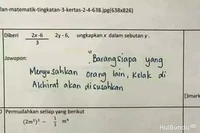 lan-matematik-tingkatan-3-kertas-2-4-638.jpg(638x826)
Diberi 2x-6/3 2y - 6, ungkapkan x dalam sebutan y.
Jawapan:
"Barangsiapa yang
Mengusahkan orang lain, Kelak di
Akhirat akan disusahkan
[3mark
Permudahkan setiap yang berikut
(2m³)³ ÷ 1/3 m⁴